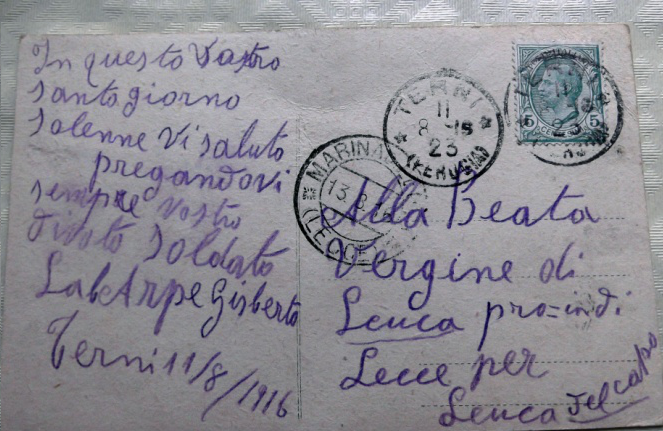 In questo Vastro
Santo giorno
Solenne Vi saluto
pregandovi
sempre vostro
divoto Soldato
Gisberto
Terni 11/8/1916
TERNI
11
8-16
23
(PERUGIA)
5 5
MARINA
13.8
(LECCE)
Alla Beata
Vergine di
Leuca pro=indi
Lecce per
Leuca del capo